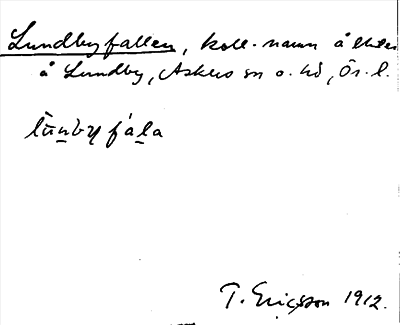 Lundbyfallen, koll. namn å
å Lundby, Askers sn o. hd, Ör. l.
lūnby fála
T. Ericsson 1912.